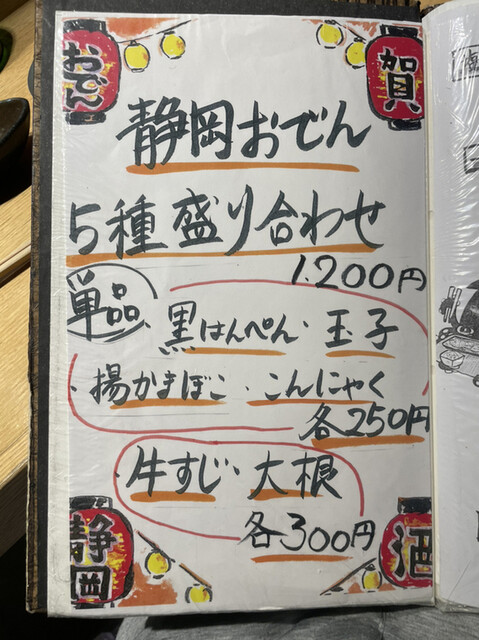 おでん
賀
静岡おでん
5種盛り合わせ
1200円
単品
黒はんぺん・玉子
・揚かまぼこ・こんにゃく
各250円
・牛すじ・大根
各300円
静岡
酒